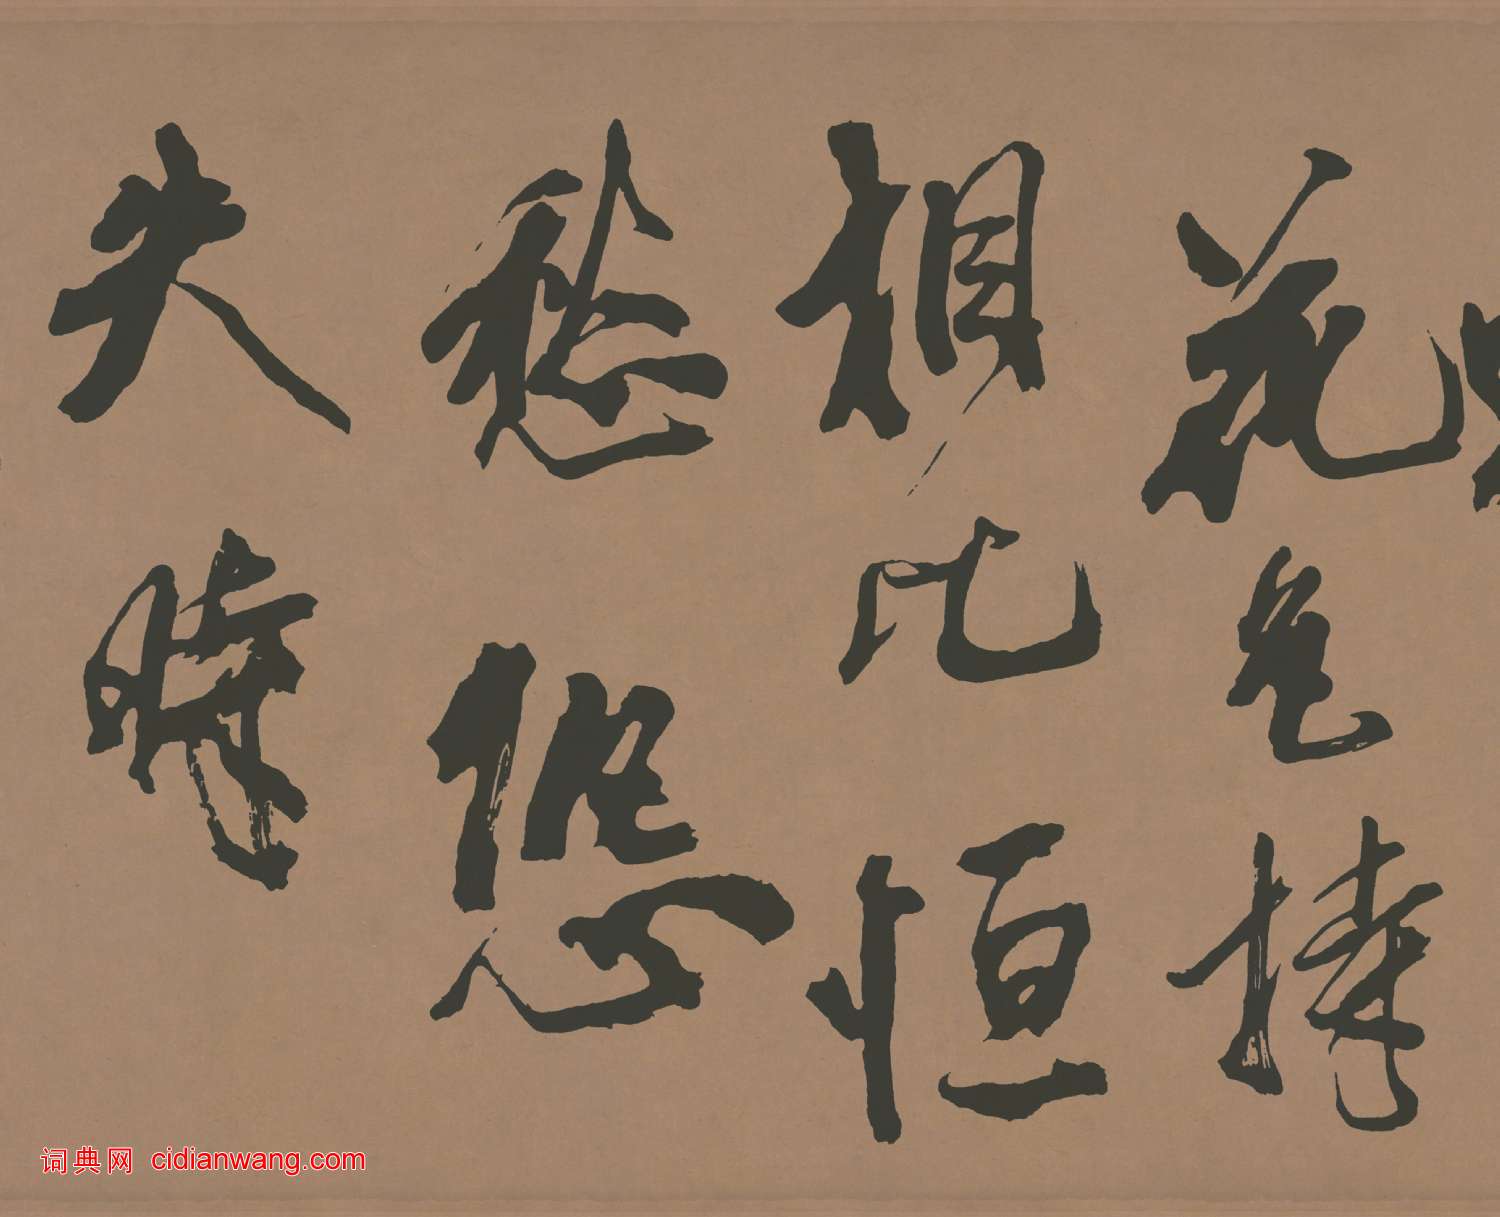 花色持
相比恒
愁恐
失時
词典网 cidianwang.com